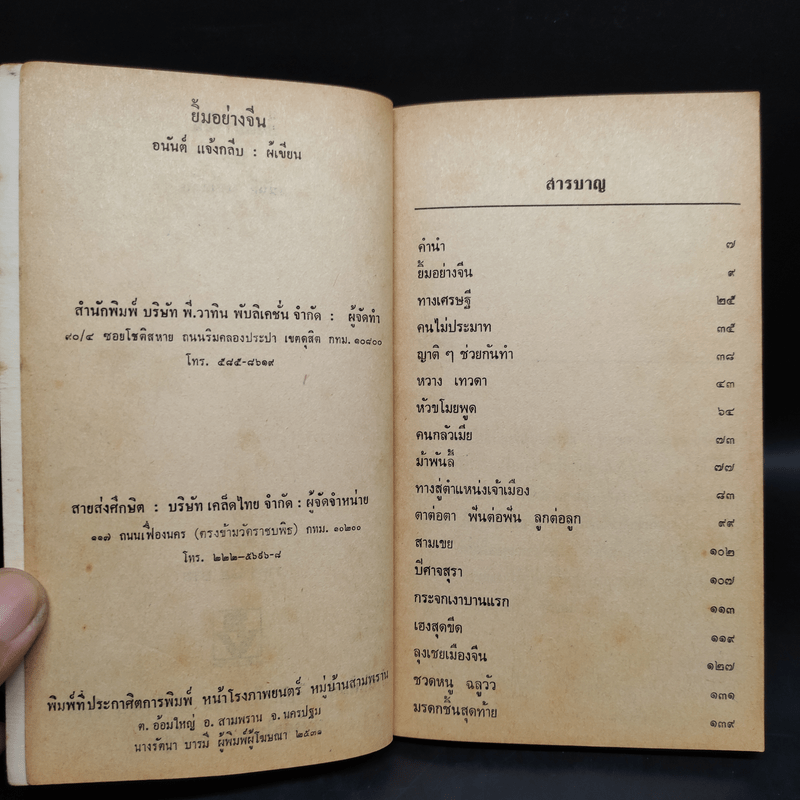 ยิ้มอย่างจีน
อนันต์ แจ้งกลีบ : ผู้เขียน
สำนักพิมพ์ บริษัท พี.วาทิน พับลิเคชั่น จำกัด : ผู้จัดทำ
๙๐/๔ ซอยโชติสหาย ถนนริมคลองประปา เขตดุสิต กทม. ๑๐๘๐๐
โทร. ๕๘๕-๘๖๑๙
สายส่งศึกษิต : บริษัท เคล็ดไทย จำกัด : ผู้จัดจำหน่าย
๑๑๗ ถนนเฟื่องนคร (ตรงข้ามวัดราชบพิธ) กทม. ๑๐๒๐๐
โทร. ๒๒๒-๕๖๙๖-๘
พิมพ์ที่ประกาศิตการพิมพ์ หน้าโรงภาพยนตร์ หมู่บ้านสามพราน
ต. อ้อมใหญ่ อ. สามพราน จ. นครปฐม
นางรัตนา บารมี ผู้พิมพ์ผู้โฆษณา ๒๕๓๑
สารบาญ
คำนำ ๗
ยิ้มอย่างจีน ๙
ทางเศรษฐี ๒๕
คนไม่ประมาท ๓๕
ญาติ ๆ ช่วยกันทำ ๓๘
หวาง เทวดา ๔๓
หัวขโมยพูด ๖๔
คนกลัวเมีย ๗๓
ม้าพันลี้ ๗๗
ทางสู่ตำแหน่งเจ้าเมือง ๘๓
ตาต่อตา ฟันต่อฟัน ลูกต่อลูก ๙๙
สามเขย ๑๐๒
ปีศาจสุรา ๑๐๗
กระจกเงาบานแรก ๑๑๓
เฮงสุดขีด ๑๑๙
ลุงเชยเมืองจีน ๑๒๗
ชวดหนู ฉลูวัว ๑๓๑
มรดกชิ้นสุดท้าย ๑๓๙